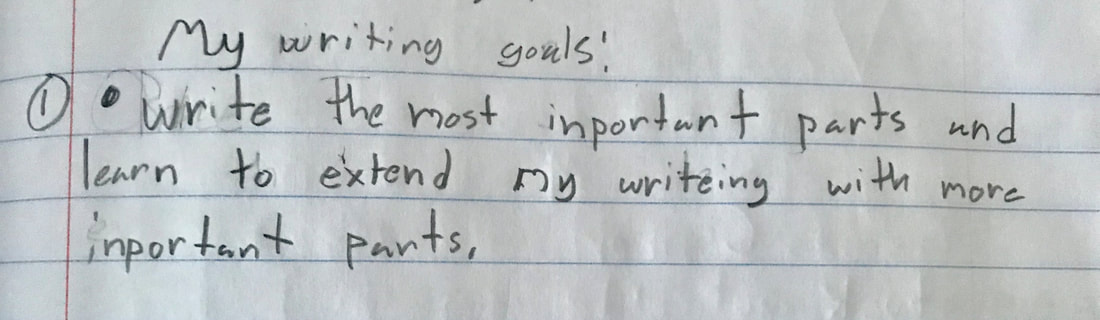 My writing goals:
① • Write the most inportant parts and
learn to extend my writeing with more
inportant parts.